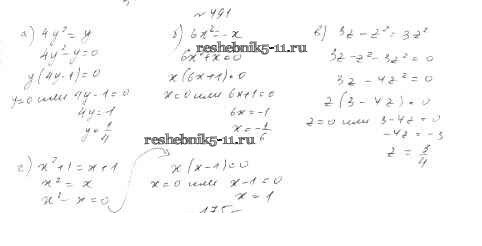 № 491
а) 4y² = y
4y² - y = 0
y(4y - 1) = 0
y = 0 или 4y - 1 = 0
4y = 1
y = 1/4
б) 6x² = -x
6x² + x = 0
x(6x + 1) = 0
x = 0 или 6x + 1 = 0
6x = -1
x = -1/6
в) 3z - z² = 3z²
3z - z² - 3z² = 0
3z - 4z² = 0
z(3 - 4z) = 0
z = 0 или 3 - 4z = 0
-4z = -3
z = 3/4
г) x² + 1 = x + 1
x² = x
x² - x = 0
x(x - 1) = 0
x = 0 или x - 1 = 0
x = 1
reshebnik5-11.ru
reshebnik5-11.ru